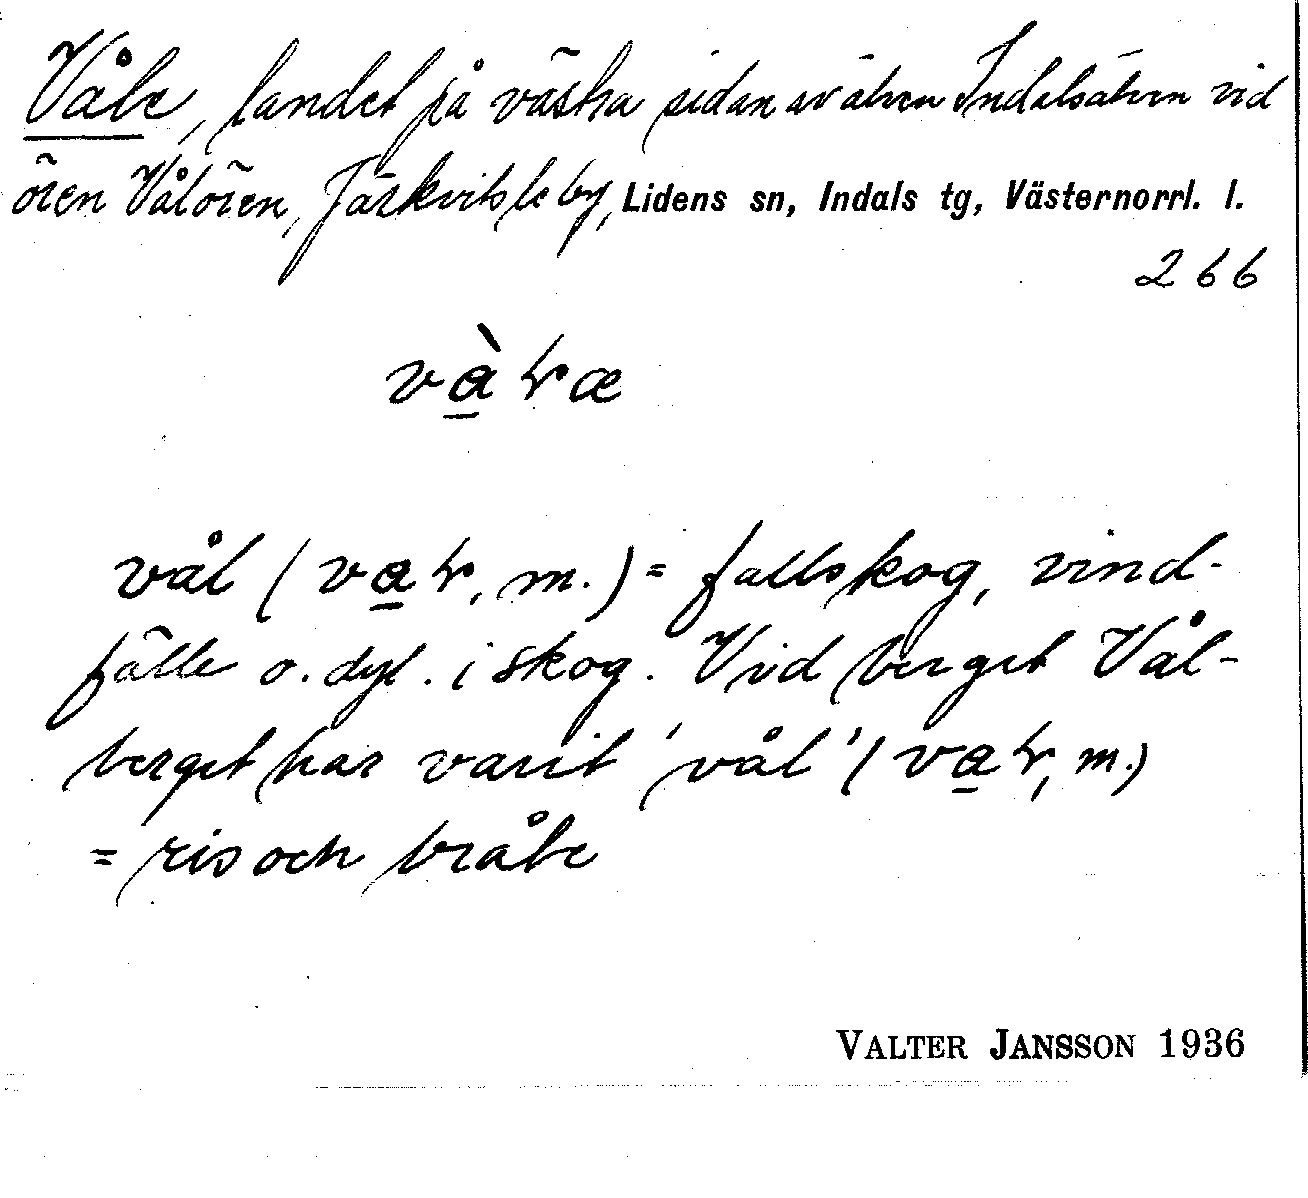 Våle, landet på västra sidan av älven Indalsälven vid
ören Vålören, Järkvitsle by, Lidens sn, Indals tg, Västernorrl. l.
266
vàɽæ
vål (vaɽ, m.) = fallskog, vind-
fälle o. dyl. i skog. Vid berget Vål-
berget har varit 'vål' (vaɽ, m.)
= ris och bråte
VALTER JANSSON 1936